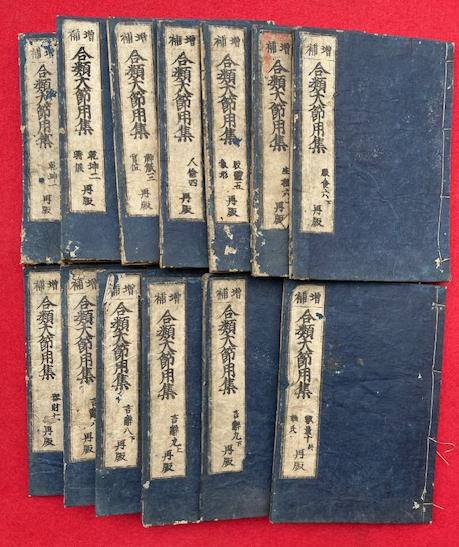 増補
合類大節用集
乾坤一
再版
増補
合類大節用集
乾坤二
再版
増補
合類大節用集
三
官位
再版
増補
合類大節用集
人倫四
再版
増補
合類大節用集
五
再版
増補
合類大節用集
六
再版
増補
合類大節用集
服食六下
再版
増補
合類大節用集
器財七
再版
増補
合類大節用集
言辞八
再版
増補
合類大節用集
言辞八下
再版
増補
合類大節用集
言辞九上
再版
増補
合類大節用集
言辞九下
再版
増補
合類大節用集
数量十
姓氏
再版